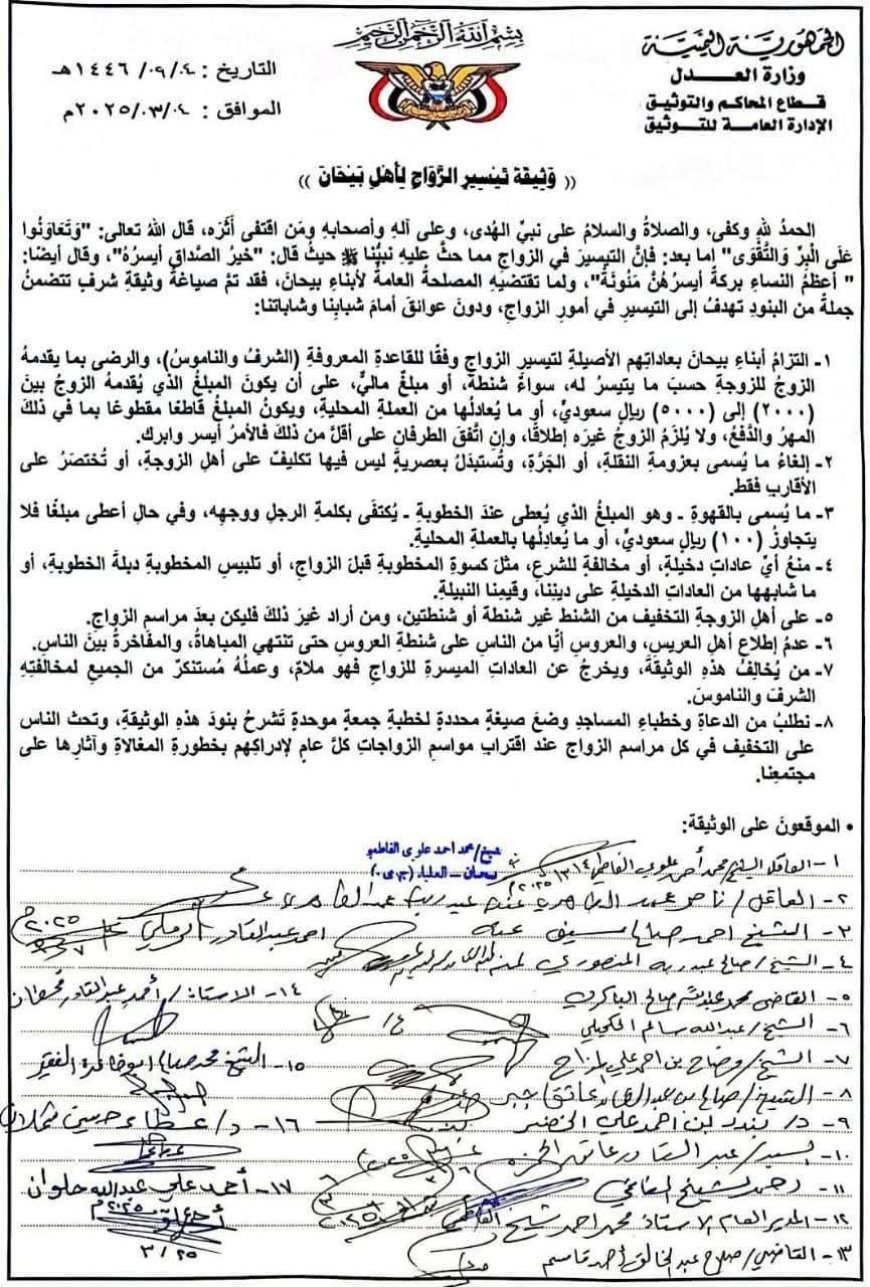 بسم الله الرحمن الرحيم
الجمهورية اليمنية
وزارة العدل
قطاع المحاكم والتوثيق
الإدارة العامة للتوثيق
التاريخ : ١٤٤٦/٠٩/٠٤هـ
الموافق : ٢٠٢٥/٠٣/٠٤م
(( وَثِيقة تيسيرِ الزَّوَاجِ لأهلِ بَيْحَانَ ))
الحمدُ للهِ وكفى، والصلاةُ والسلامُ على نبيِّ الهُدى، وعلى آلهِ وأصحابهِ ومَن اقتفى أثَرَه، قال اللهُ تعالى: "وَتَعَاوَنُوا
عَلَى الْبِرِّ وَالتَّقْوَى" إما بعد: فإنَّ التيسيرَ في الزواجِ مما حثَّ عليهِ نبيُّنا ﷺ حيثُ قال: "خيرُ الصَّداقِ أيسرُهُ"، وقال أيضًا:
" أعظمُ النساءِ بركةً أيسرُهُنَّ مَئونَةً"، ولما تقتضيهِ المصلحةُ العامةُ لأبناءِ بيحانَ، فقد تمَّ صياغةُ وثيقةِ شرفٍ تتضمنُ
جملةً من البنودِ تهدفُ إلى التيسيرِ في أمورِ الزواجِ، ودونَ عوائقَ أمامَ شبابِنا وشاباتنا:
١- التزامُ أبناءِ بيحانَ بعاداتِهم الأصيلةِ لتيسيرِ الزواجِ وفقًا للقاعدةِ المعروفةِ (الشرفُ والناموسُ)، والرضى بما يقدمهُ
الزوجُ للزوجةِ حسبَ ما يتيسرُ له، سواءً شنطة، أو مبلغٌ ماليٌّ، على أن يكونَ المبلغُ الذي يُقدمهُ الزوجُ بينَ
(٢٠٠٠) إلى (٥٠٠٠) ريالٍ سعوديٍّ، أو ما يُعادلُها من العملةِ المحليةِ، ويكونُ المبلغُ قاطعًا مقطوعًا بما في ذلكَ
المهرُ والدَّفعُ، ولا يُلزَمُ الزوجُ غيرَه إطلاقًا، وإن اتَّفقَ الطرفانِ على أقلَّ من ذلكَ فالأمرُ أيسر وابرك.
٢- إلغاءُ ما يُسمى بعزومةِ النقلةِ، أو الجَرَّةِ، وتُستبدَلُ بعصريةٍ ليس فيها تكليفٌ على أهلِ الزوجةِ، أو تُختصَرُ على
الأقاربِ فقط.
٣- ما يُسمى بالقهوةِ - وهو المبلغُ الذي يُعطى عندَ الخطوبةِ - يُكتفَى بكلمةِ الرجلِ ووجهِه، وفي حالِ أعطى مبلغًا فلا
يتجاوزُ (١٠٠) ريالٍ سعوديٍّ، أو ما يُعادِلُها بالعملةِ المحليةِ.
٤- منعُ أيِّ عاداتٍ دخيلةٍ، أو مخالفةٍ للشرعِ، مثلَ كسوةِ المخطوبةِ قبلَ الزواجِ، أو تلبيسِ المخطوبةِ دبلةَ الخطوبةِ، أو
ما شابهها من العاداتِ الدخيلةِ على ديننا، وقيمنا النبيلةِ.
٥- على أهلِ الزوجةِ التخفيف من الشنط غير شنطة أو شنطتين، ومن أراد غيرَ ذلكَ فليكن بعدَ مراسم الزواج.
٦- عدمُ إطلاعِ أهلِ العريسِ، والعروسِ أيًّا من الناسِ على شنطةِ العروسِ حتى تنتهي المباهاةُ، والمفاخرةُ بينَ الناسِ.
٧- من يُخالِفُ هذهِ الوثيقةَ، ويخرجُ عن العاداتِ الميسرةِ للزواجِ فهو ملامٌ، وعملُهُ مُستنكرٌ من الجميعِ لمخالفتِهِ
الشرفَ والناموسَ.
٨- نطلبُ من الدعاةِ وخطباءِ المساجدِ وضعَ صيغةٍ محددةٍ لخطبةِ جمعةٍ موحدةٍ تَشرحُ بنودَ هذهِ الوثيقةِ، وتحث الناس
على التخفيف في كل مراسم الزواج عند اقترابِ مواسمِ الزواجاتِ كلَّ عامٍ لإدراكِهم بخطورةِ المغالاةِ وآثارِها على
مجتمعِنا.
• الموقعونَ على الوثيقة:
شيخ/ محمد احمد علوي الفاطمي
بيحان – العلياء
١- العاقل الشيخ محمد أحمد علوي الفاطمي
٢- العاقل / ناصر
٣- الشيخ احمد صالح سيف
احمد عبدالقادر
٢٠٢٥
٤- الشيخ / صالح عبدربه المنصوري
٥- القاضي محمد عبدالله صالح الباكري
١٤- الاستاذ / أحمد عبدالقادر
٦- الشيخ / عبدالله سالم الكحيلي
٧- الشيخ / وضاح بن احمد علي
١٥- الشيخ محمد صالح
٨- الشيخ / صالح بن
٩- د/ بندر ابن احمد علي الخضر
١٦- د/ عطاء حسين
١٠- عبدالقادر عاتق
١١-
١٧- أحمد علي عبدالله حلوان
١٢- المدير العام الاستاذ محمد احمد شيخ الفاطمي
١٣- القاضي / صلاح عبدالخالق أحمد قاسم